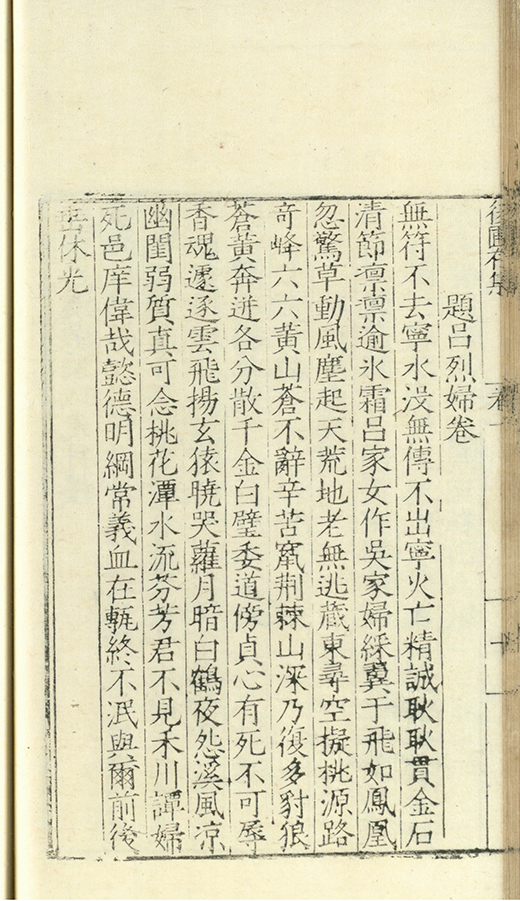 題呂烈婦卷
無符不去寧水没無傳不出寧火亡精誠耿耿貫金石
清節凛凛逾氷霜呂家女作吳家婦綵翼于飛如鳳凰
忽驚草動風塵起天荒地老無逃藏東尋空擬桃源路
奇峰六六黄山蒼不辭辛苦竄荆棘山深乃復多豺狼
蒼黄奔迸各分散千金白璧委道傍貞心有死不可辱
香魂遽逐雲飛揚玄猿曉哭蘿月暗白鶴夜怨溪風凉
幽閨弱質真可念桃花潭水流芬芳君不見禾川譚婦
死邑庠偉哉懿德明綱常義血在甎終不泯與爾前後
休光